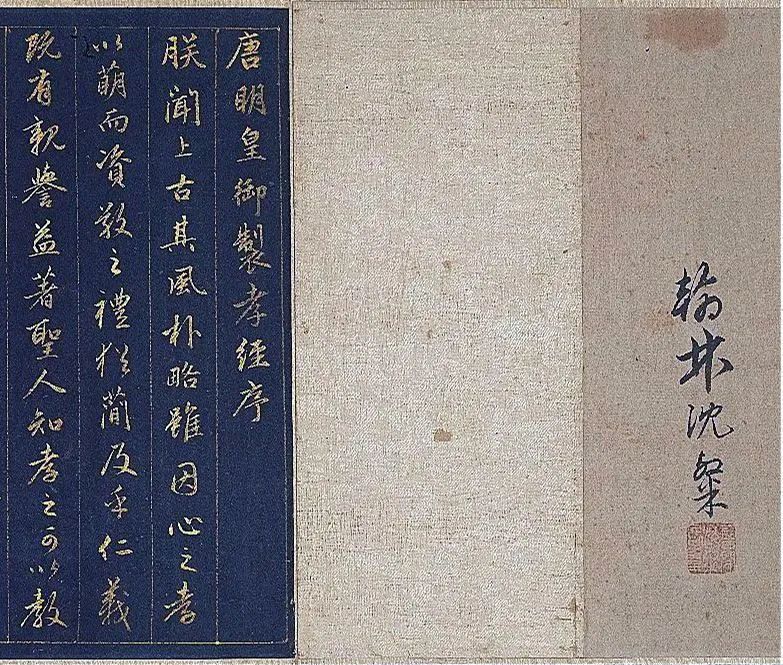 翰林沈粲
唐明皇御製孝經序
朕聞上古其風朴略雖因心之孝
以萌而資敬之禮猶簡及乎仁義
既有親譽益著聖人知孝之可以教